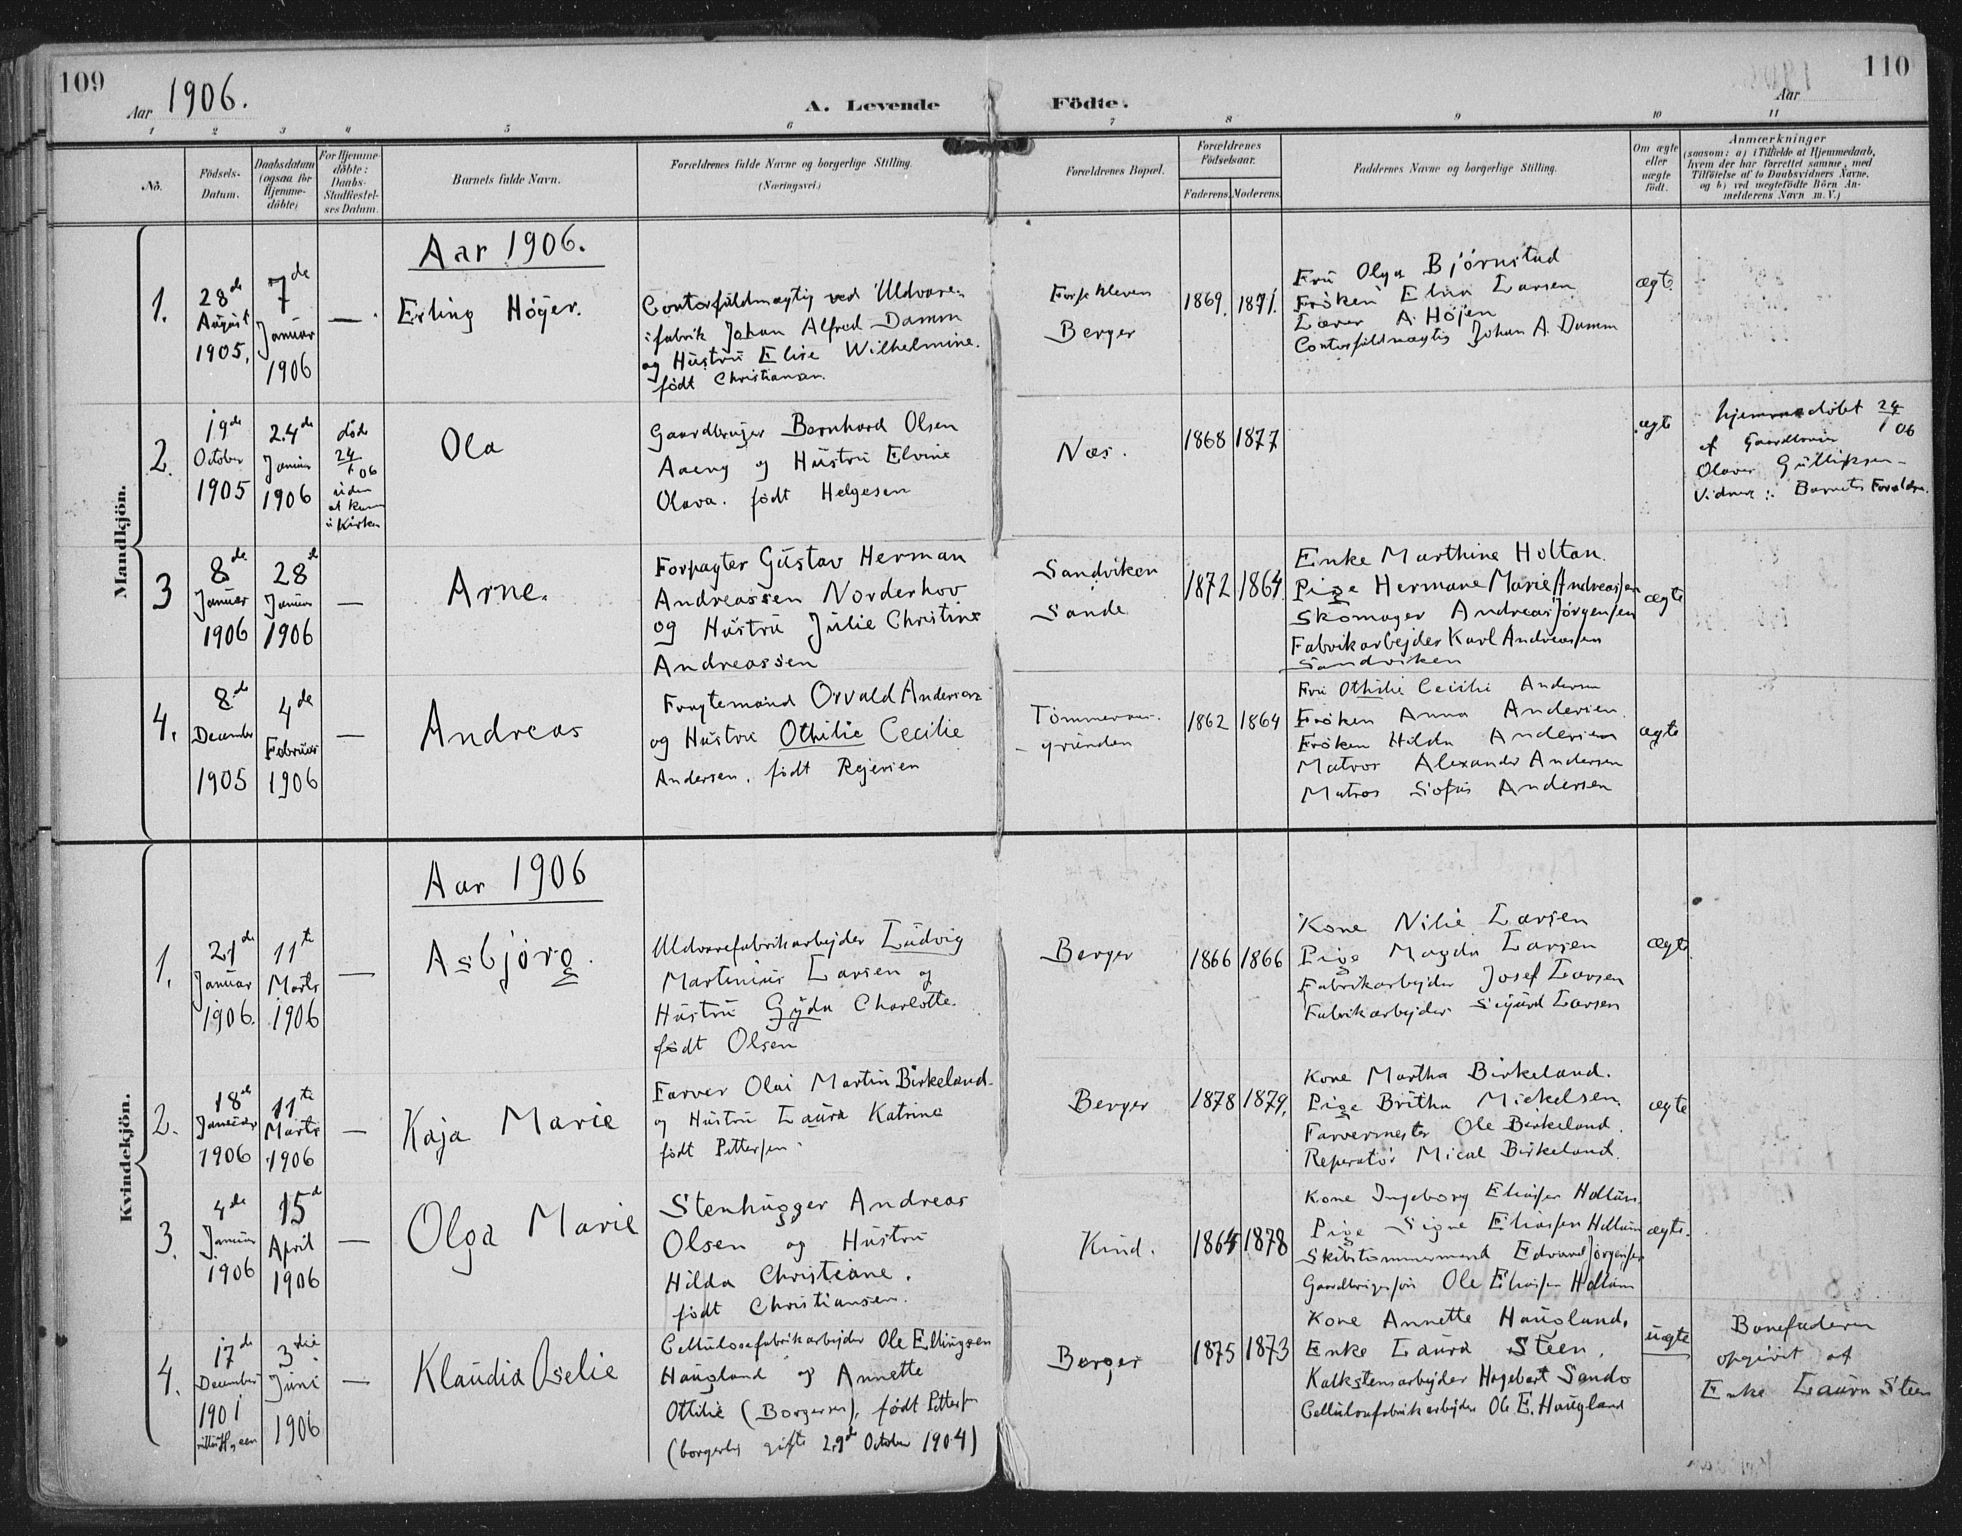 109
Aar 1906.
A. Levende Födte.
Aar
110
1 2 3 4 5 6 7 8 9 10 11
No.
Födsels-
Datum.
Daabsdatum
(ogsaa for
Hjemme-
döbte)
For Hjemme-
döbte:
Daabs-
Stadfæstel-
ses Datum.
Barnets fulde Navn.
Forældrenes fulde Navne og borgerlige Stilling.
(Næringsvei.)
Forældrenes Bopæl.
Forældrenes
Födselsaar.
Faderens.
Moderens.
Faddernes Navne og borgerlige Stilling.
Om ægte
eller
uægte
födt.
Anmærkninger
(saasom: a) i Tilfælde af Hjemmedaab,
hvem der har forrettet samme, med
Tilföielse af to Daabsvidners Navne.
og b) ved uægtefödte Börn An-
melderens Navn m. V.)
Mandkjön.
Aar 1906.
1.
28de
August
1905.
7de
Januar
1906
—
Erling Höyer.
Contorfuldmægtig ved Uldvare-
fabrik Johan Alfred Damm
og Hustru Elise Wilhelmine
födt Christiansen.
Berger
1869.
1871.
Fru Olga Björnstad
Fröken Elna Larsen
Lærer A. Höjen
Contorfuldmægtig Johan A. Damm
ægte
2.
19de
October
1905
24de
Januar
1906
död
24/1 06
uden
at komme
i Kirken
Ola
Gaardbruger Bernhard Olsen
Aaeng og Hustru Elvine
Olava. födt Helgesen
Næs.
1868
1877
ægte
hjemmedöbt 24/1 06
af Gaardbruger
Olaver Gulliksen
Vidner: Barnets Forældre.
3
8de
Januar
1906
28de
Januar
1906
—
Arne.
Forpagter Gustav Herman
Andreassen Norderhov
og Hustru Julie Christine
Andreassen
Sandviken
Sande
1872
1864
Enke Marthine Holtan.
Pige Hermane Marie Andreassen
Skomager Andreas Jörgensen
Fabrikarbejder Karl Andreassen
Sandviken
ægte
4.
8de
December
1905
4de
Februar
1906
—
Andreas
Fragtemand Orvald Andersen
og Hustru Othilie Cecilie
Andersen. födt Rejersen
Tömmeraas-
grunden
1862
1864
Fru Othilie Cecilie Andersen
Fröken Anna Andersen.
Fröken Hilda Andersen
Matros Alexander Andersen
Matros Sofus Andersen
ægte
Kvindekjön.
Aar 1906
1.
21de
Januar
1906.
11te
Marts
1906
—
Asbjörg.
Uldvarefabrikarbejder Ludvig
Martinius Larsen og
Hustru Gyda Charlotte.
födt Olsen
Berger
1866
1866
Kone Nilie Larsen
Pige Magda Larsen
Fabrikarbejder Josef Larsen
Fabrikarbejder Sigurd Larsen
ægte.
2.
18de
Januar
1906
11te
Marts
1906
—
Kaja Marie
Farver Olai Martin Birkeland
og Hustru Laura Katrine
födt Pettersen.
Berger
1878
1879.
Kone Martha Birkeland.
Pige Britha Mickelsen.
Farvermester Ole Birkeland.
Reperatör Mical Birkeland.
ægte
3.
4de
Januar
1906
15de
April
1906
—
Olga Marie
Stenhugger Andreas
Olsen og Hustru
Hilda Christiane.
födt Christiansen.
Kind.
1864
1878
Kone Ingeborg Eliassen Hollum
Pige Signe Eliassen Hollum
Skibstömmermand Edvard Jörgensen
Gaardbrugersön Ole Eliassen Hollum
ægte.
4.
17de
December
1901
3die
Juni
1906
—
Klaudia Oselie
Cellulosefabrikarbejder Ole Ellingsen
Haugland og Annette
Ottilie (Borgersen), födt Pettersen
(borgerlig gifte 29de October 1904)
Berger
1875
1873
Kone Annette Haugland.
Enke Laura Steen.
Kalkstensarbejder Hagebart Sando
Cellulosefabrikarbejder Ole E. Haugland
uægte
Barnefaderen
opgivet af
Enke Laura Steen